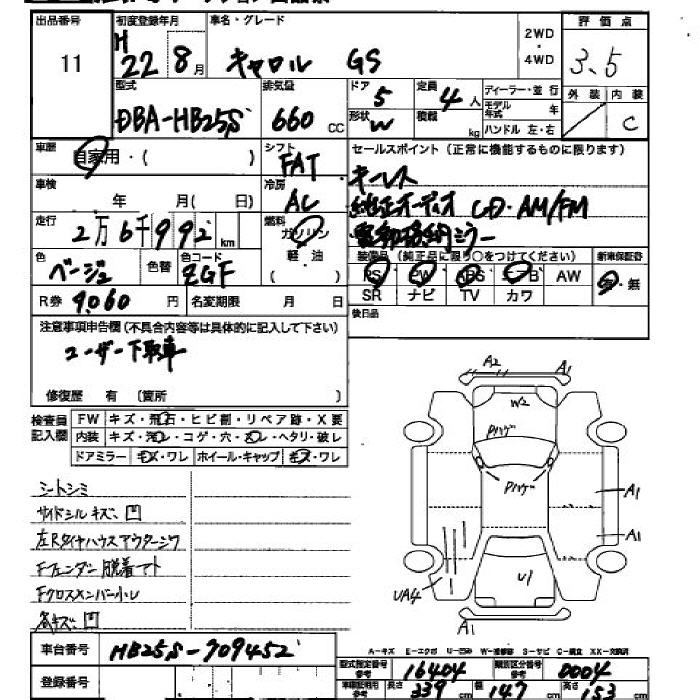 出品番号 初度登録年月 車名・グレード 2WD・4WD 評価点
11 H 22 8月 キャロル GS 3.5
型式 排気量 ドア 定員 ディーラー・並行 外装 内装
DBA-HB25S 660 CC 5 4人 モデル年式 年 C
形状 W 積載 kg ハンドル 左・右
車歴 自家用・( ) シフト FAT セールスポイント(正常に機能するものに限ります)
車検 年 月( 日) 冷房 AC キーレス
純正オーディオ CD・AM/FM
走行 2万6千992km 燃料 ガソリン 軽油 ( )
電動格納ミラー
装備品(純正品に限り○をつけてください) 新車保証書
色 ベージュ 色替 色コード ZGF
PS PW ABS エアB AW 有・無
SR ナビ TV カワ
R券 9,060円 名変期限 月 日 後日品
注意事項申告欄(不具合内容等は具体的に記入して下さい)
ユーザー下取車
修復歴 有 (箇所 )
検査員記入欄 FW キズ・飛石・ヒビ割・リペア跡・X要
内装 キズ・汚レ・コゲ・穴・スレ・ヘタリ・破レ
ドアミラー キズ・ワレ ホイール・キャップ キズ・ワレ
シートシミ
サイドシルキズ凹
左Rタイヤハウスアウターシワ
Fフェンダー脱着アト
Fクロスメンバー小レ
各キズ凹
A2 A1
W2
Pハゲ
Pハゲ
A1
A1
UA4 U1
A1
A-キズ E-エクボ U-凹み W-補修跡 S-サビ C-腐食 XX-交換済
車台番号 HB25S-709452
登録番号
型式指定番号 参考 16404 類別区分番号 参考 0004
車検証明用 参考 長さ 339 cm 幅 147 cm 高さ 153 cm